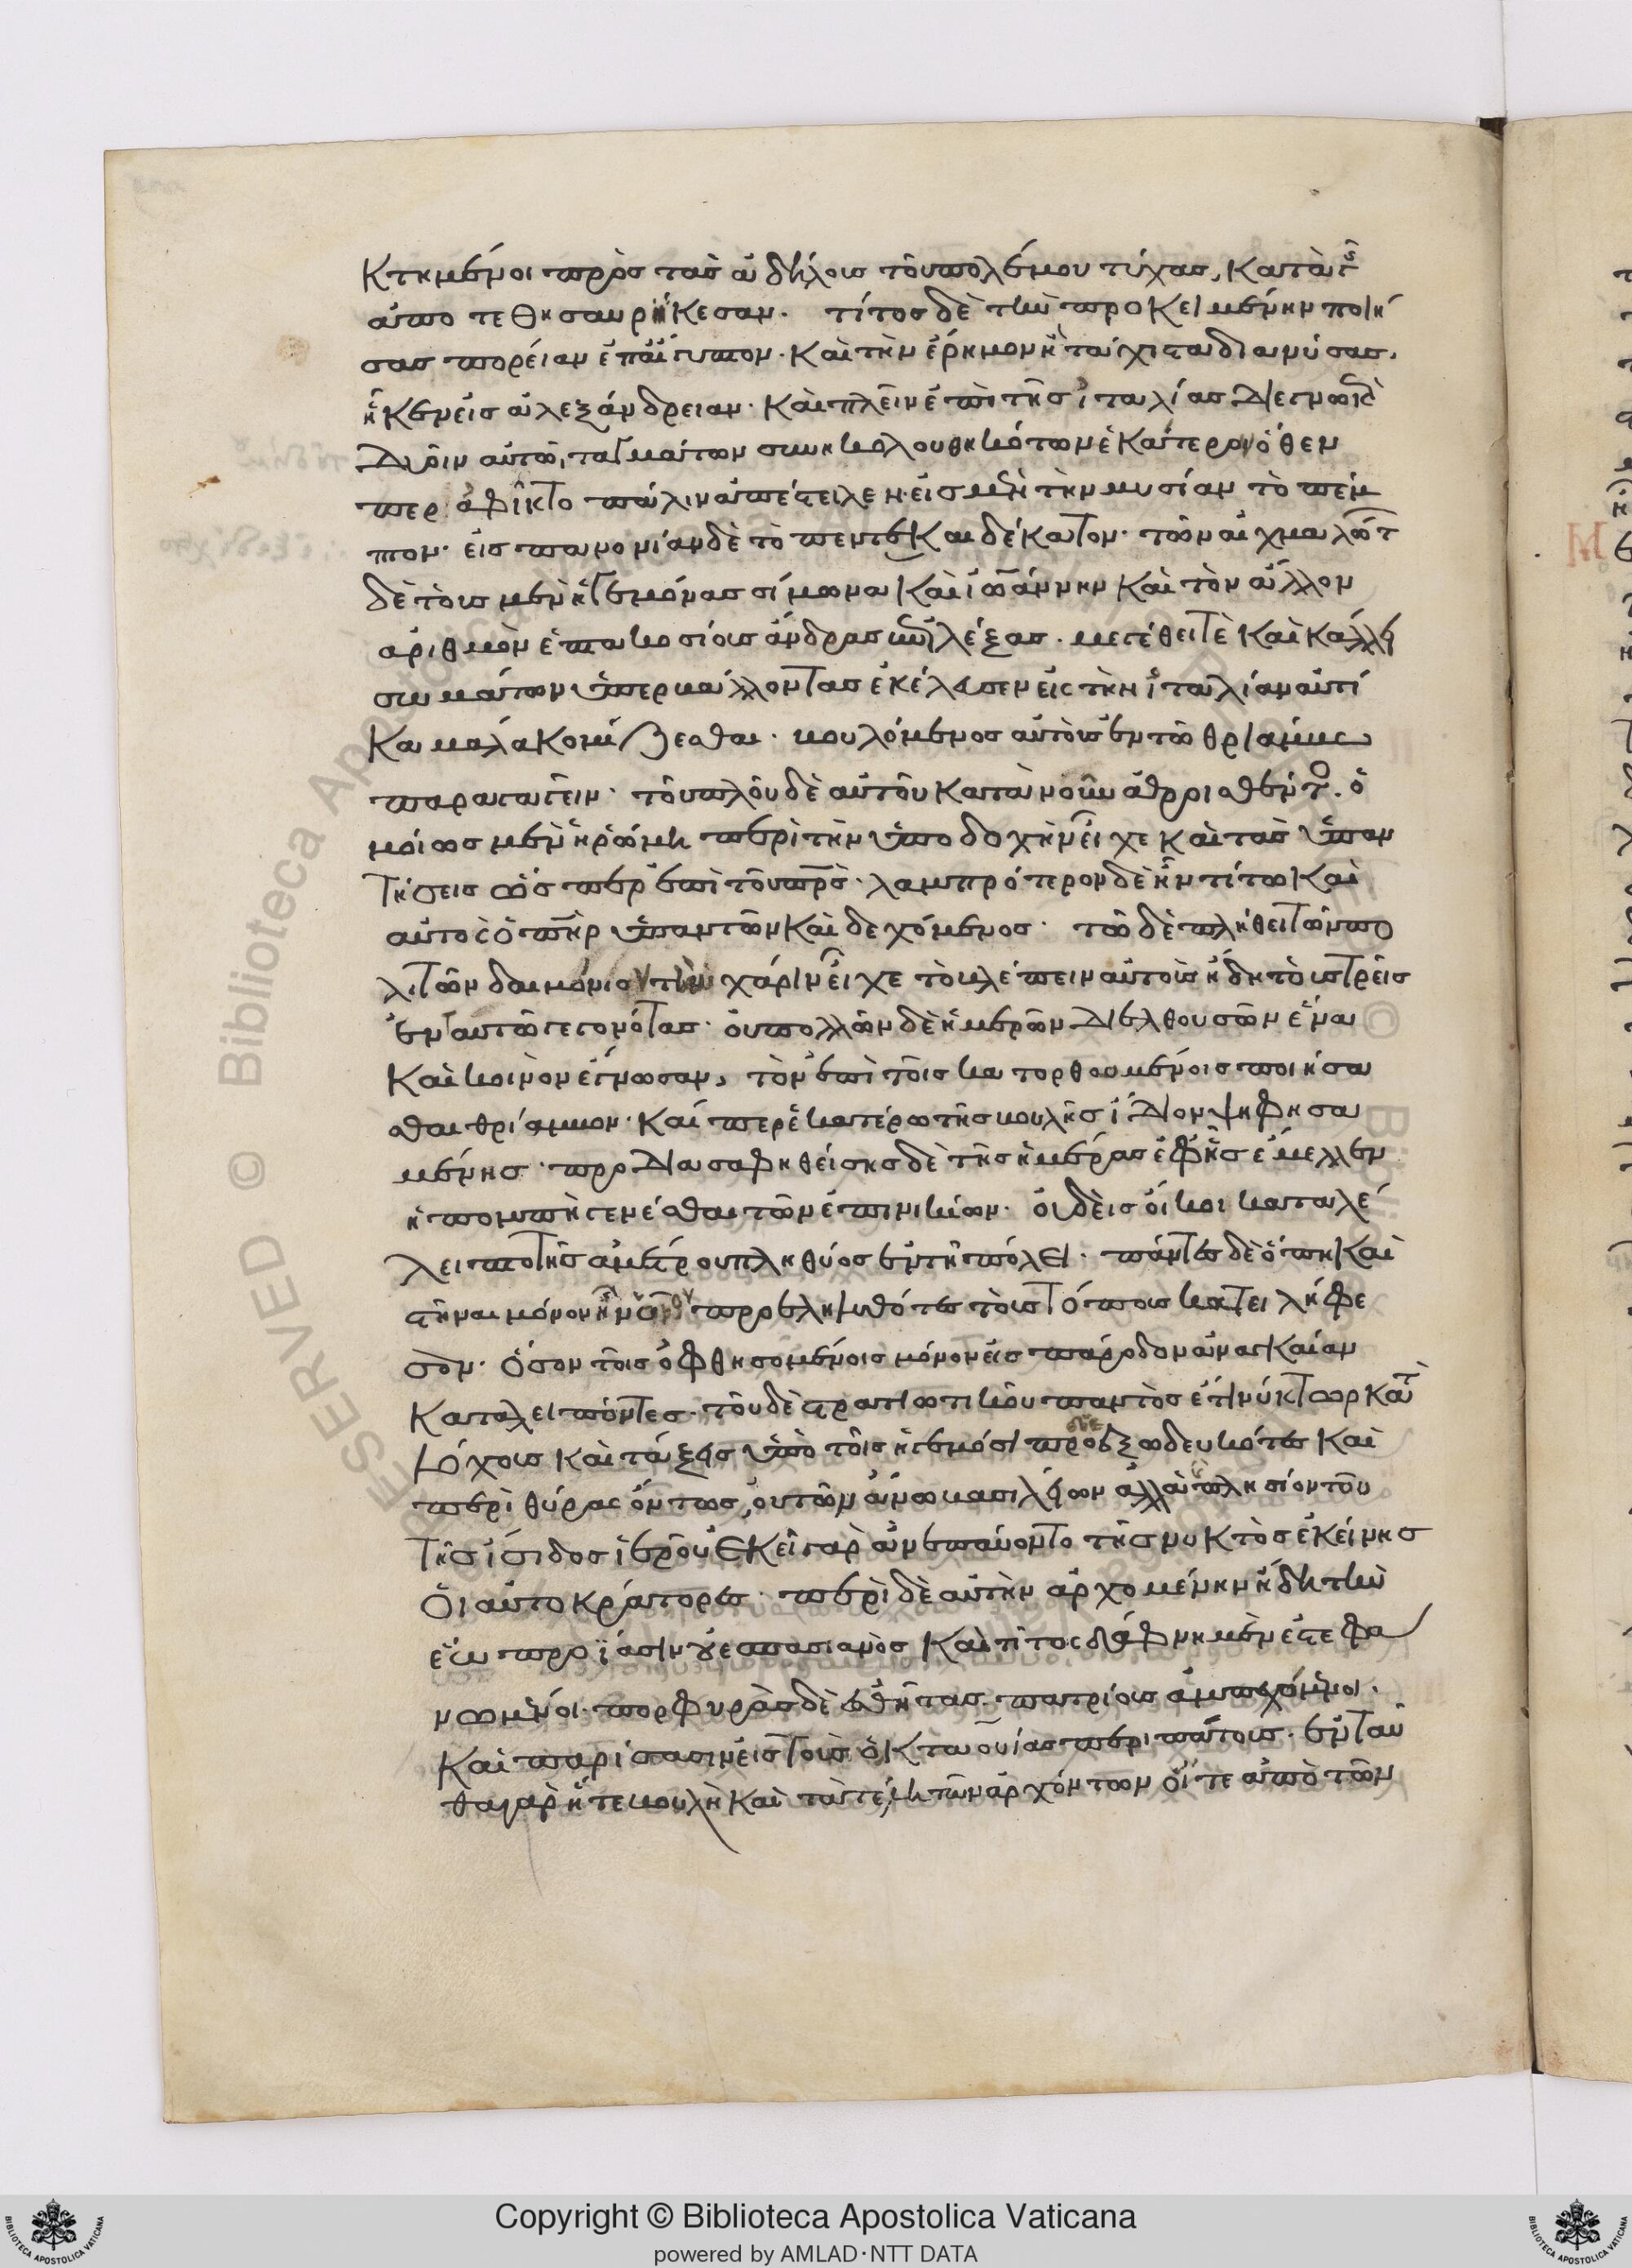 κτημένοι πρὸς τὰς ἀδήλους τοῦ πολέμου τύχας, κατὰ γῆς
ἀποτεθησαυρήκεσαν. τίτος δὲ τὴν προκειμένην ποιή
σας πορείαν ἐπ' αἴγυπτον. καὶ τὴν ἔρημον ᾗ τάχιστα διανύσας.
ἧκεν εἰς ἀλεξάνδρειαν. καὶ πλεῖν ἐπὶ τῆς ἰταλίας διεγνωκὼς
δυοῖν αὐτῷ, ταγμάτων συνηκολουθηκότων ἑκάτερον ὅθεν
περ ἀφῖκτο πάλιν ἀπέστειλεν. εἰς μὲν τὴν μυσίαν τὸ πέμ
πτον. εἰς πανονίαν δὲ τὸ πεντεκαιδέκατον. τῶν αἰχμαλώτων
δὲ τοὺς μὲν ἡγεμόνας σίμωνα καὶ ἰωάννην καὶ τὸν ἄλλον
ἀριθμὸν ἑπτακοσίους ἄνδρας ἐπιλέξας. μεγέθει τὲ καὶ κάλλει
σωμάτων ὑπερβάλλοντας ἐκέλευσεν εἰς τὴν ἰταλίαν αὐτί
κα μάλα κομίζεσθαι. βουλόμενος αὐτοὺς ἐν τῷ θριάμβῳ
παραγαγεῖν. τοῦ πλοῦ δὲ αὐτοῦ κατὰ νοῦν ἀθροισθέντος. ὁ
μοίως μὲν ἡ ῥώμη περὶ τὴν ὑποδοχὴν εἶχε καὶ τὰς ὑπαν
τήσεις ὥσπερ ἐπὶ τοῦ πατρός. λαμπρότερον δὲ ἦν τίτῳ καὶ
αὐτὸς ὁ πατὴρ ὑπαντῶν καὶ δεχόμενος. τῷ δὲ πλήθει τῶν πο
λιτῶν δαιμόνιον τὴν χάριν εἶχε τὸ βλέπειν αὐτοὺς ἤδη τοὺς τρεῖς
ἐν ταυτῷ γεγονότας. οὐ πολλῶν δὲ ἡμερῶν διελθουσῶν ἕνα
καὶ κοινὸν ἔγνωσαν, τὸν ἐπὶ τοῖς κατορθουμένοις ποιήσα
σθαι θρίαμβον. καί περ ἑκατέρω τῆς βουλῆς ἴδιον ψηφισα
μένης. προδιασαφηθείσης δὲ τῆς ἡμέρας ἐφ' ἧς ἔμελλεν
ἡ πομπὴ γενέσθαι τῶν ἐπινικίων. οὐδεὶς οἴκοι καταλέ
λειπτο τῆς ἀμέτρου πληθύος ἐν τῇ πόλει. πάντες δὲ ὅπη καὶ
στῆναι μόνον ἦν οἷόν προεληλυθότες τοὺς τόπους κατειλήφε
σαν. ὅσον τοῖς ὀφθησομένοις μόνον εἰς πάροδον ἀναγκαίαν
καταλειπόντες. τοῦ δὲ στρατιωτικοῦ παντὸς ἔτι νύκτωρ κατὰ
λόχους καὶ τάξεις ὑπὸ τοῖς ἡγεμόσι προεξωδευκότες καὶ
περὶ θύρας ὄντως, οὐ τῶν ἄνω βασιλείων ἀλλὰ πλησίον τοῦ
τῆς ἴσιδος ἱεροῦ ἐκεῖ γὰρ ἀνεπαύοντο τῆς νυκτὸς ἐκείνης
οἱ αὐτοκράτορες. περὶ δὲ αὐτὴν ἀρχομένην ἤδη τὴν
ἕω προΐασιν οὐεσπασιανὸς καὶ τίτος δάφνη μὲν ἐστεφα
νωμένοι. πορφυρᾶς δὲ ἐσθῆτας πατρίους ἀμπεχόμενοι.
καὶ παρίασιν εἰς τοὺς ὀκταουίας περιπάτους. ἐνταῦ
θα γὰρ ἥ τε βουλὴ καὶ τὰ τέλη τῶν ἀρχόντων οἵ τε ἀπὸ τῶν
Copyright © Biblioteca Apostolica Vaticana
powered by AMLAD·NTT DATA